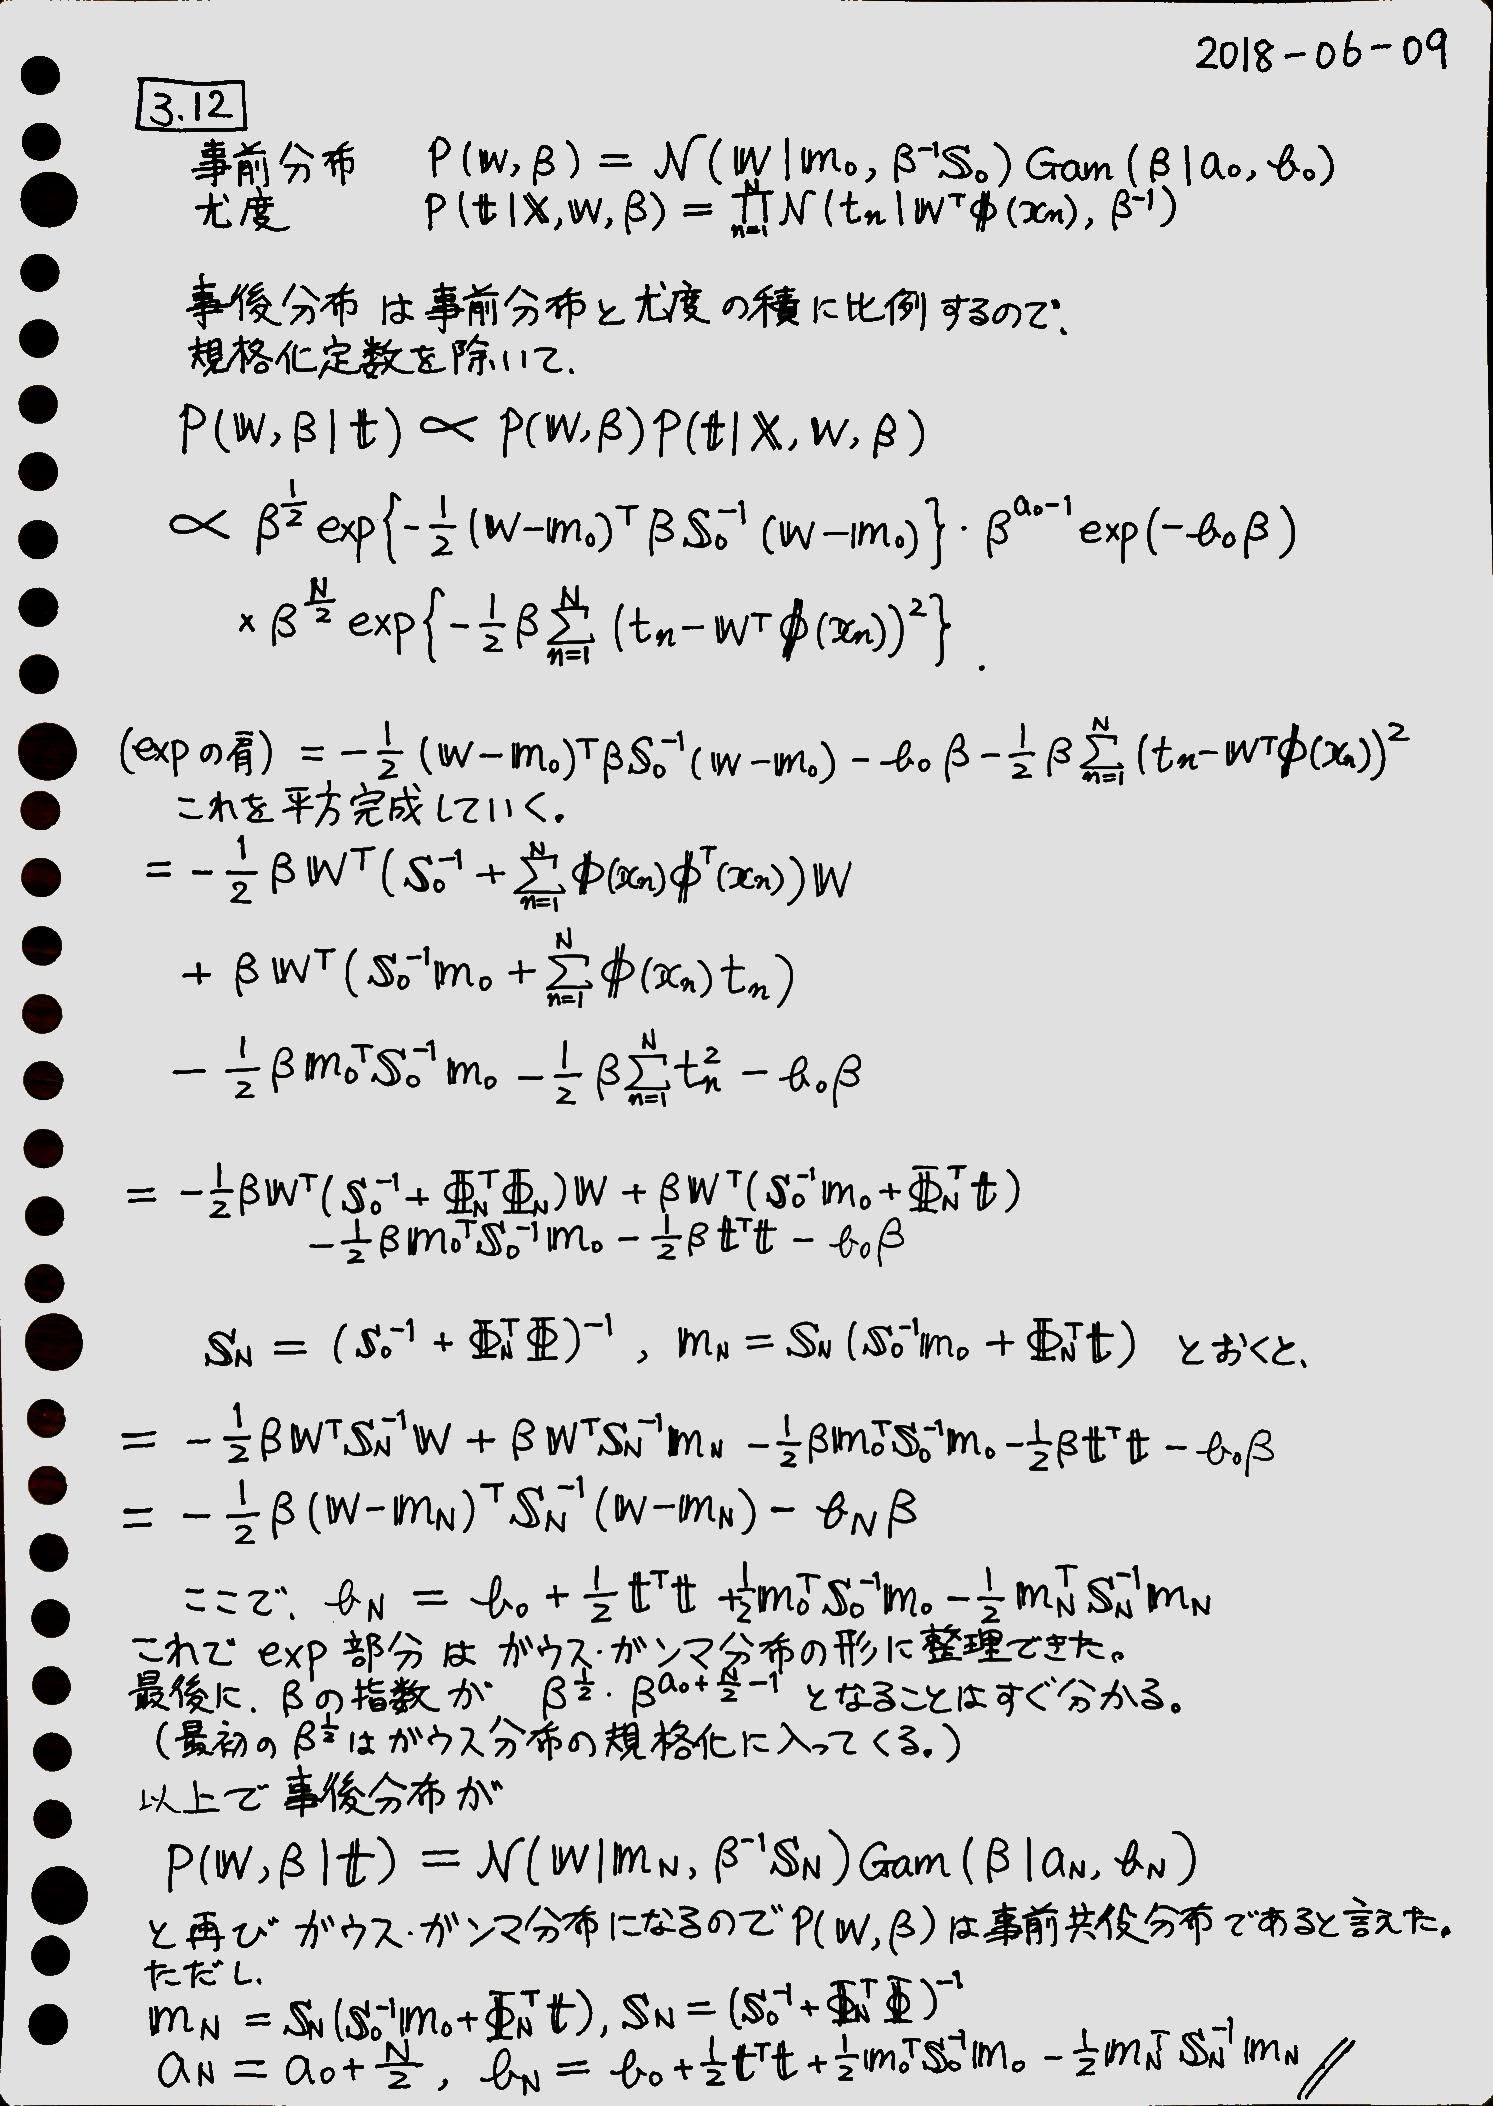 2018-06-09
3.12
事前分布 P(𝕨, β) = N(𝕨|𝕞₀, β⁻¹𝕊₀) Gam(β|a₀, b₀)
尤度 P(𝕥|𝕏, 𝕨, β) = ∏_{n=1}^{N} N(tₙ|𝕨ᵀφ(xₙ), β⁻¹)
事後分布は事前分布と尤度の積に比例するので、
規格化定数を除いて、
P(𝕨, β|𝕥) ∝ P(𝕨, β) P(𝕥|𝕏, 𝕨, β)
∝ β^{1/2} exp{-1/2 (𝕨-𝕞₀)ᵀ β𝕊₀⁻¹ (𝕨-𝕞₀)} · β^{a₀-1} exp(-b₀β)
× β^{N/2} exp{-1/2 β ∑_{n=1}^{N} (tₙ-𝕨ᵀφ(xₙ))²}.
(expの肩) = -1/2 (𝕨-𝕞₀)ᵀβ𝕊₀⁻¹(𝕨-𝕞₀) - b₀β - 1/2 β ∑_{n=1}^{N} (tₙ-𝕨ᵀφ(xₙ))²
これを平方完成していく。
= -1/2 β𝕨ᵀ(𝕊₀⁻¹ + ∑_{n=1}^{N} φ(xₙ)φᵀ(xₙ))𝕨
+ β𝕨ᵀ(𝕊₀⁻¹𝕞₀ + ∑_{n=1}^{N} φ(xₙ)tₙ)
- 1/2 β𝕞₀ᵀ𝕊₀⁻¹𝕞₀ - 1/2 β ∑_{n=1}^{N} tₙ² - b₀β
= -1/2 β𝕨ᵀ(𝕊₀⁻¹ + Φ_NᵀΦ_N)𝕨 + β𝕨ᵀ(𝕊₀⁻¹𝕞₀ + Φ_Nᵀ𝕥)
- 1/2 β𝕞₀ᵀ𝕊₀⁻¹𝕞₀ - 1/2 β𝕥ᵀ𝕥 - b₀β
𝕊_N = (𝕊₀⁻¹ + Φ_NᵀΦ)⁻¹, 𝕞_N = 𝕊_N(𝕊₀⁻¹𝕞₀ + Φ_Nᵀ𝕥) とおくと、
= -1/2 β𝕨ᵀ𝕊_N⁻¹𝕨 + β𝕨ᵀ𝕊_N⁻¹𝕞_N - 1/2 β𝕞₀ᵀ𝕊₀⁻¹𝕞₀ - 1/2 β𝕥ᵀ𝕥 - b₀β
= -1/2 β(𝕨-𝕞_N)ᵀ𝕊_N⁻¹(𝕨-𝕞_N) - b_Nβ
ここで、b_N = b₀ + 1/2 𝕥ᵀ𝕥 + 1/2 𝕞₀ᵀ𝕊₀⁻¹𝕞₀ - 1/2 𝕞_Nᵀ𝕊_N⁻¹𝕞_N
これで exp 部分は ガウス・ガンマ分布の形に整理できた。
最後に、βの指数が β^{1/2}·β^{a₀+N/2-1} となることはすぐ分かる。
(最初の β^{1/2} はガウス分布の規格化に入ってくる。)
以上で事後分布が
P(𝕨, β|𝕥) = N(𝕨|𝕞_N, β⁻¹𝕊_N) Gam(β|a_N, b_N)
と再び ガウス・ガンマ分布になるので P(𝕨, β) は事前共役分布であると言えた。
ただし、
𝕞_N = 𝕊_N(𝕊₀⁻¹𝕞₀ + Φ_Nᵀ𝕥), 𝕊_N = (𝕊₀⁻¹ + Φ_NᵀΦ)⁻¹
a_N = a₀ + N/2, b_N = b₀ + 1/2 𝕥ᵀ𝕥 + 1/2 𝕞₀ᵀ𝕊₀⁻¹𝕞₀ - 1/2 𝕞_Nᵀ𝕊_N⁻¹𝕞_N //